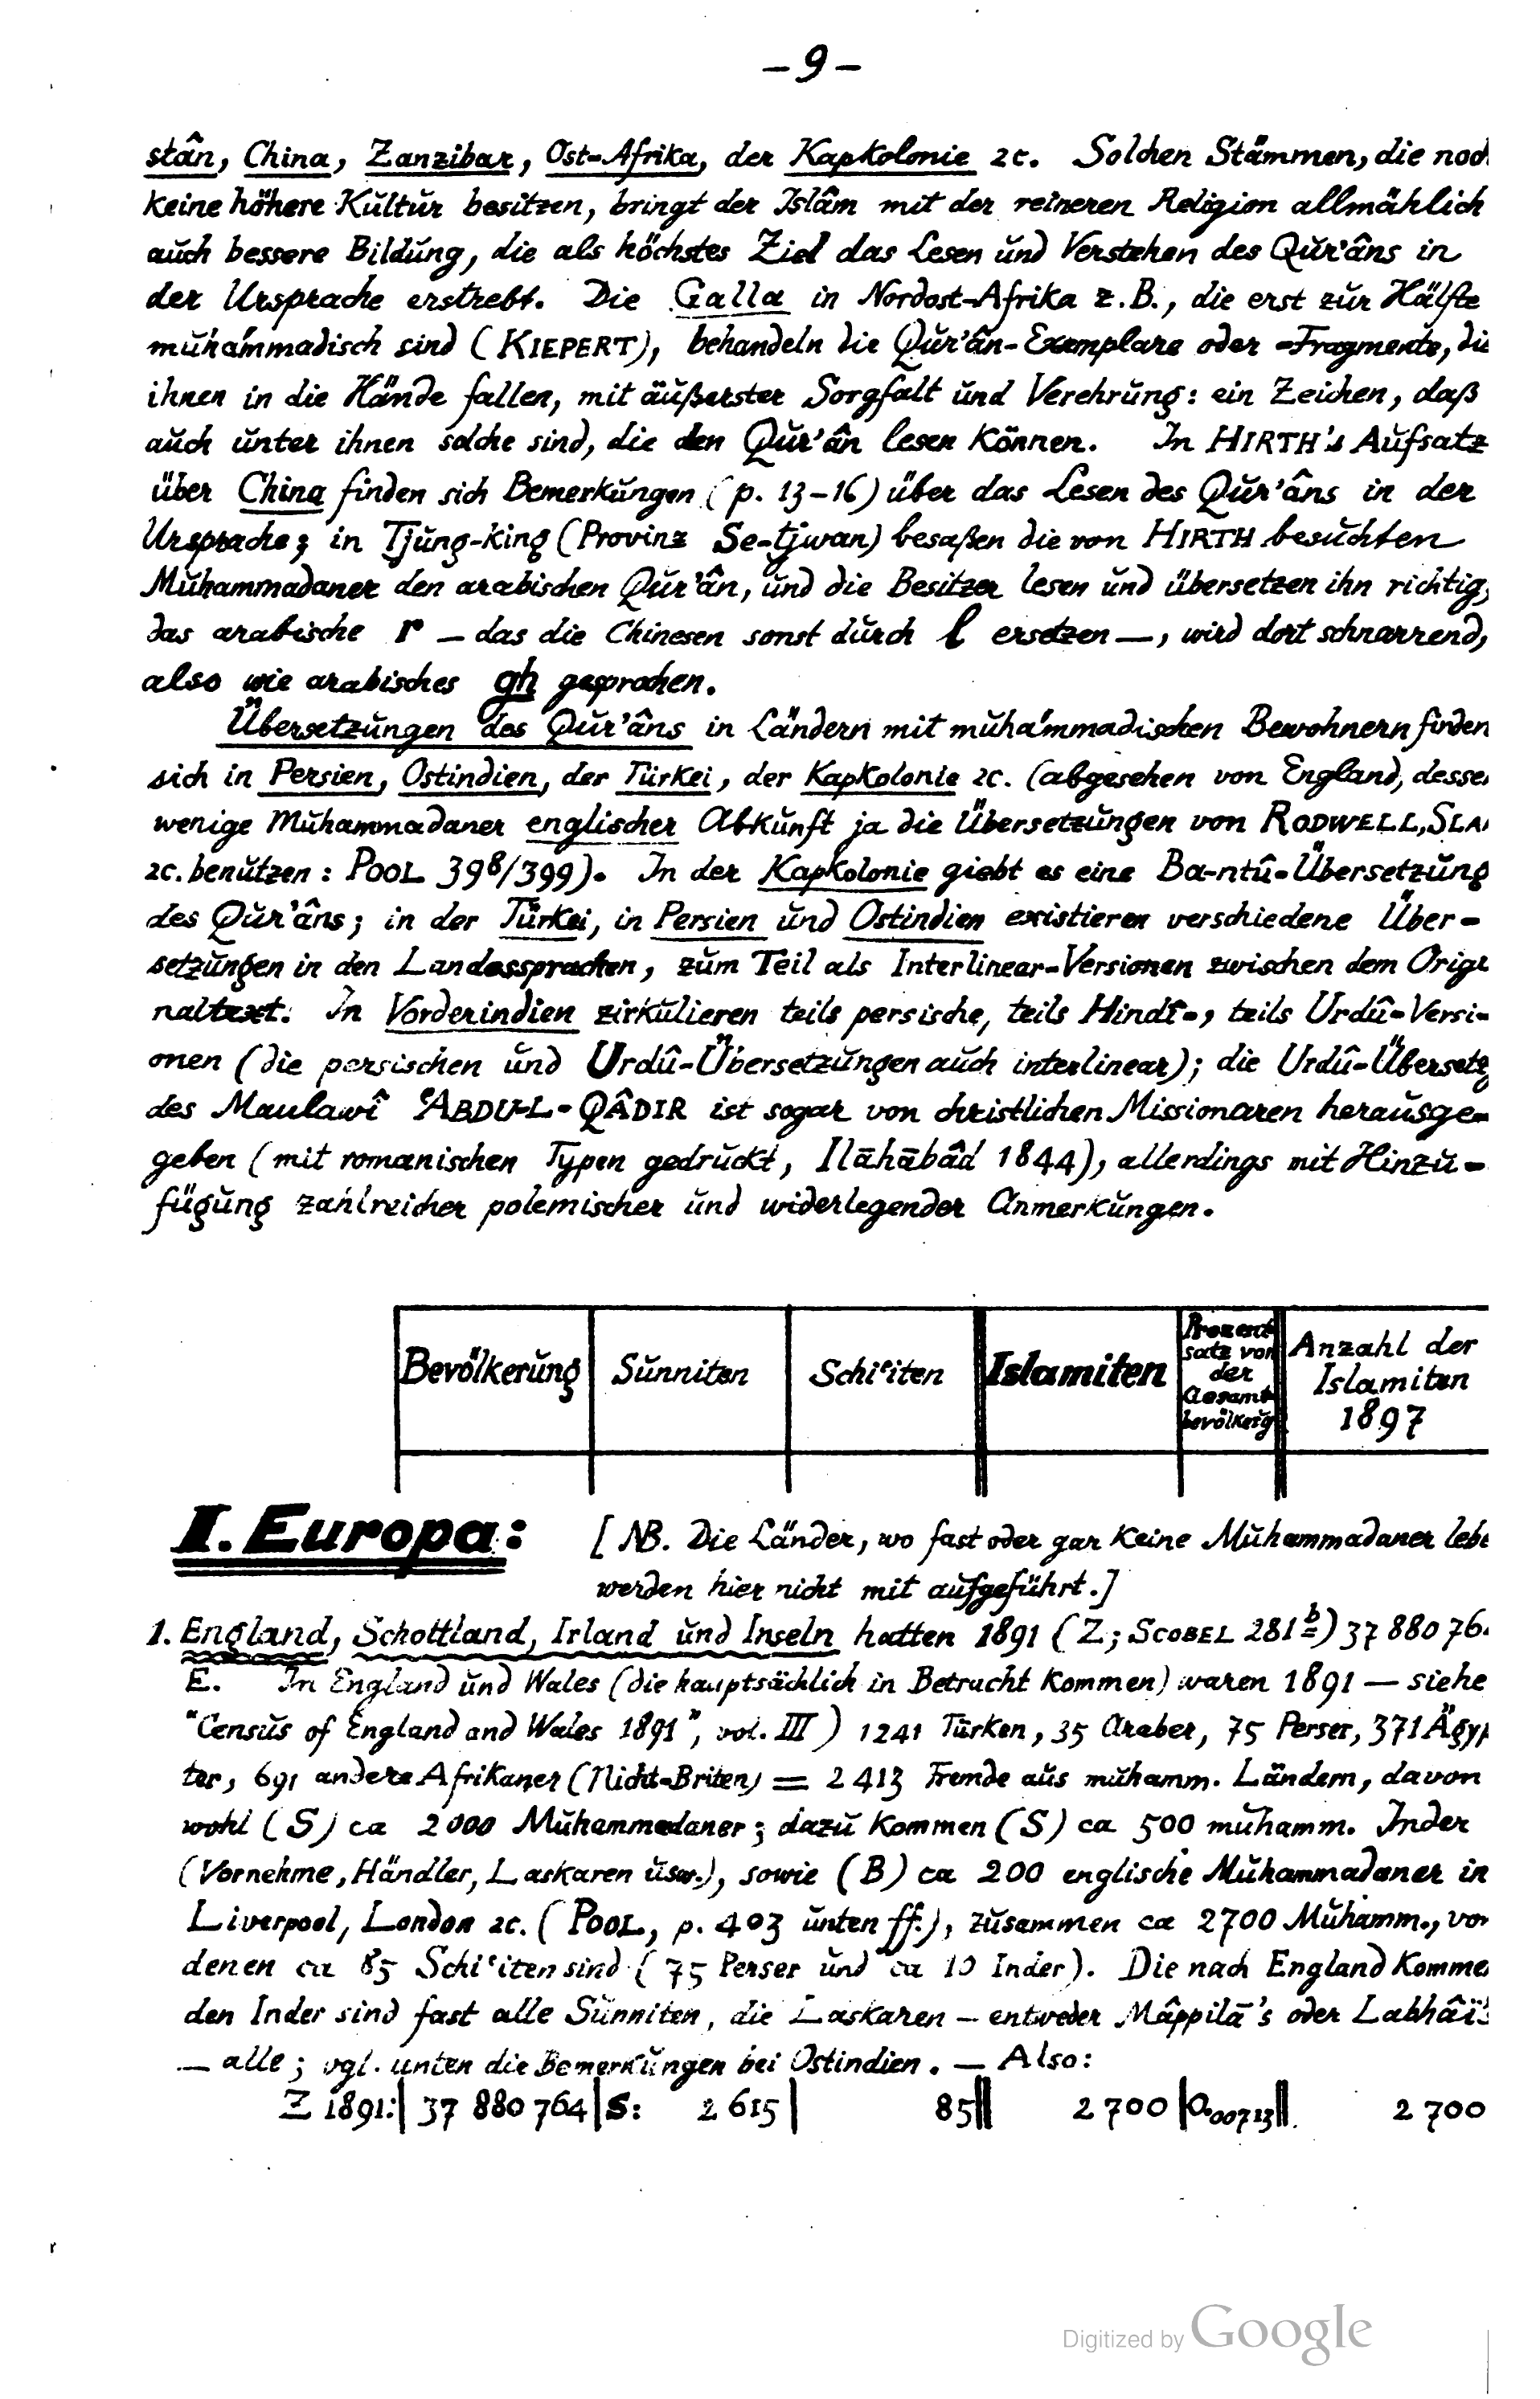 – 9 –
stân, China, Zanzibar, Ost-Afrika, der Kapkolonie 2c. Solchen Stämmen, die noch
keine höhere Kultur besitzen, bringt der Islâm mit der reineren Religion allmählich
auch bessere Bildung, die als höchstes Ziel das Lesen und Verstehen des Qur'âns in
der Ursprache erstrebt. Die Galla in Nordost-Afrika z.B., die erst zur Hälfte
muhámmadisch sind (KIEPERT), behandeln die Qur'ân-Exemplare oder =Fragmente, die
ihnen in die Hände fallen, mit äußerster Sorgfalt und Verehrung: ein Zeichen, daß
auch unter ihnen solche sind, die den Qur'ân lesen können. In HIRTH's Aufsatz
über China finden sich Bemerkungen (p. 13–16) über das Lesen des Qur'âns in der
Ursprache; in Tjung-king (Provinz Se-tjwan) besaßen die von HIRTH besuchten
Muhammadaner den arabischen Qur'ân, und die Besitzer lesen und übersetzen ihn richtig,
das arabische r – das die Chinesen sonst durch l ersetzen –, wird dort schnarrend,
also wie arabisches gh gesprochen.
Übersetzungen des Qur'âns in Ländern mit muhámmadischen Bewohnern finden
sich in Persien, Ostindien, der Türkei, der Kapkolonie 2c. (abgesehen von England, desse
wenige Muhammadaner englischer Abkunft ja die Übersetzungen von RODWELL, SLA
2c. benutzen: POOL 398/399). In der Kapkolonie giebt es eine Ba-ntû-Übersetzung
des Qur'âns; in der Türkei, in Persien und Ostindien existieren verschiedene Über=
setzungen in den Landessprachen, zum Teil als Interlinear-Versionen zwischen dem Origi
naltext. In Vorderindien zirkulieren teils persische, teils Hindî=, teils Urdû=Versi=
onen (die persischen und Urdû-Übersetzungen auch interlinear); die Urdû-Übersetzg
des Maulawî ʿABDU-L-QÂDIR ist sogar von christlichen Missionaren herausge=
geben (mit romanischen Typen gedruckt, Ilāhābâd 1844), allerdings mit Hinzu=
fügung zahlreicher polemischer und widerlegender Anmerkungen.
Bevölkerung | Sunniten | Schiʿiten | Islamiten | Prozentsatz von der Gesamtbevölkerg | Anzahl der Islamiten 1897
I. Europa: [NB. Die Länder, wo fast oder gar keine Muhammadaner lebe
werden hier nicht mit aufgeführt.]
1. England, Schottland, Irland und Inseln hatten 1891 (Z; SCOBEL 281b) 37 880 76
E. In England und Wales (die hauptsächlich in Betracht kommen) waren 1891 — siehe
"Census of England and Wales 1891", vol. III) 1241 Türken, 35 Araber, 75 Perser, 371 Ägyp
ter, 691 andere Afrikaner (Nicht-Briten) = 2 413 Fremde aus muhamm. Ländern, davon
wohl (S) ca 2 000 Muhammadaner; dazu kommen (S) ca 500 muhamm. Inder
(Vornehme, Händler, Laskaren usw.), sowie (B) ca 200 englische Muhammadaner in
Liverpool, London 2c. (POOL, p. 403 unten ff.), zusammen ca 2700 Muhamm., von
denen ca 85 Schiʿiten sind (75 Perser und ca 10 Inder). Die nach England komme
den Inder sind fast alle Sunniten, die Laskaren – entweder Mâppilā's oder Labhâï's
– alle; vgl. unten die Bemerkungen bei Ostindien. — Also:
Z 1891: | 37 880 764 | S: 2 615 | 85 || 2 700 | 0.00713 || 2 700
Digitized by Google